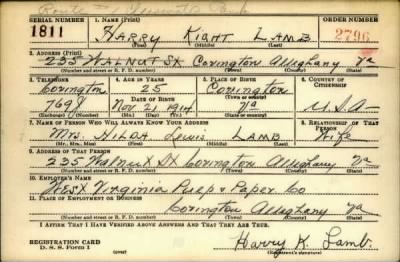 SERIAL NUMBER 1. NAME (Print) ORDER NUMBER
1811 HARRY KIGHT LAMB 2796
(First) (Middle) (Last)
2. ADDRESS (Print)
235 WALNUT St Covington Alleghany Va
(Number and street or R. F. D. number) (Town) (County) (State)
3. TELEPHONE 4. AGE IN YEARS 5. PLACE OF BIRTH 6. COUNTRY OF CITIZENSHIP
Covington 25 Covington
DATE OF BIRTH (Town or county)
769J Nov 21 1914 Va U.S.A.
(Exchange) (Number) (Mo.) (Day) (Yr.) (State or country)
7. NAME OF PERSON WHO WILL ALWAYS KNOW YOUR ADDRESS 8. RELATIONSHIP OF THAT PERSON
Mrs. HILDA Lewis LAMB Wife
(Mr., Mrs., Miss) (First) (Middle) (Last)
9. ADDRESS OF THAT PERSON
235 Walnut St Covington Alleghany Va
(Number and street or R. F. D. number) (Town) (County) (State)
10. EMPLOYER'S NAME
West Virginia Pulp & Paper Co
11. PLACE OF EMPLOYMENT OR BUSINESS
Covington Alleghany Va
(Number and street or R. F. D. number) (Town) (County) (State)
I AFFIRM THAT I HAVE VERIFIED ABOVE ANSWERS AND THAT THEY ARE TRUE.
REGISTRATION CARD
D. S. S. Form 1 (over) Harry K. Lamb.